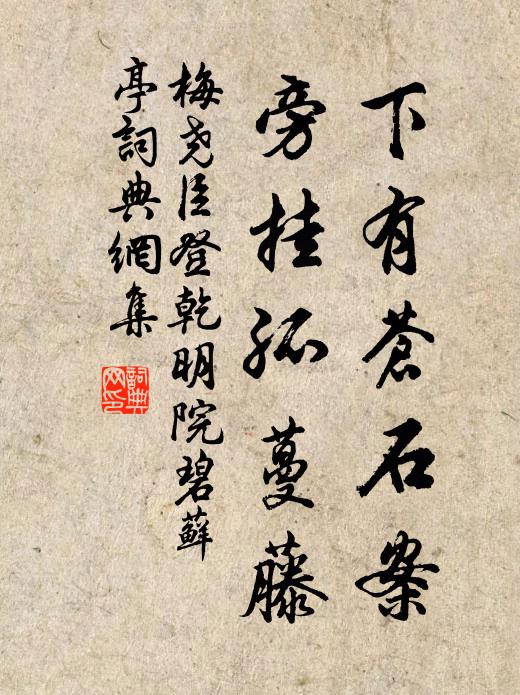 下有苍石案
旁挂孤蔓藤
梅尧臣登乾明院碧藓
亭詞典網集
詞典
网印